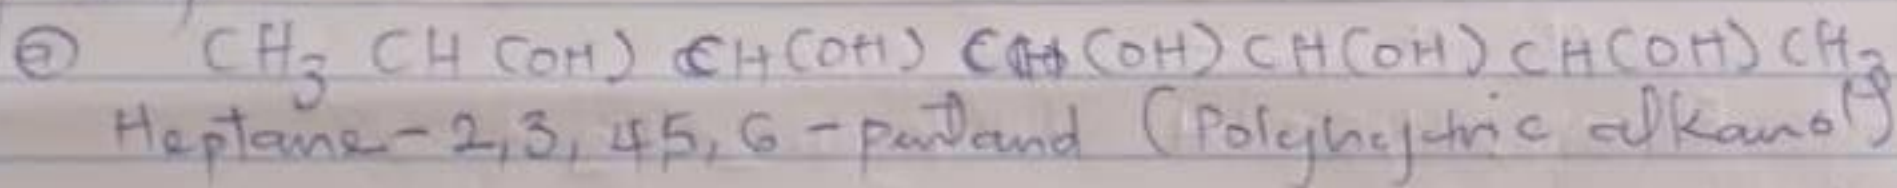 (e) CH₃ CH (OH) CH(OH) CH (OH) CH(OH) CH(OH) CH₃
Heptane-2,3, 45, 6 - pentanol (Polyhydric alkanol)